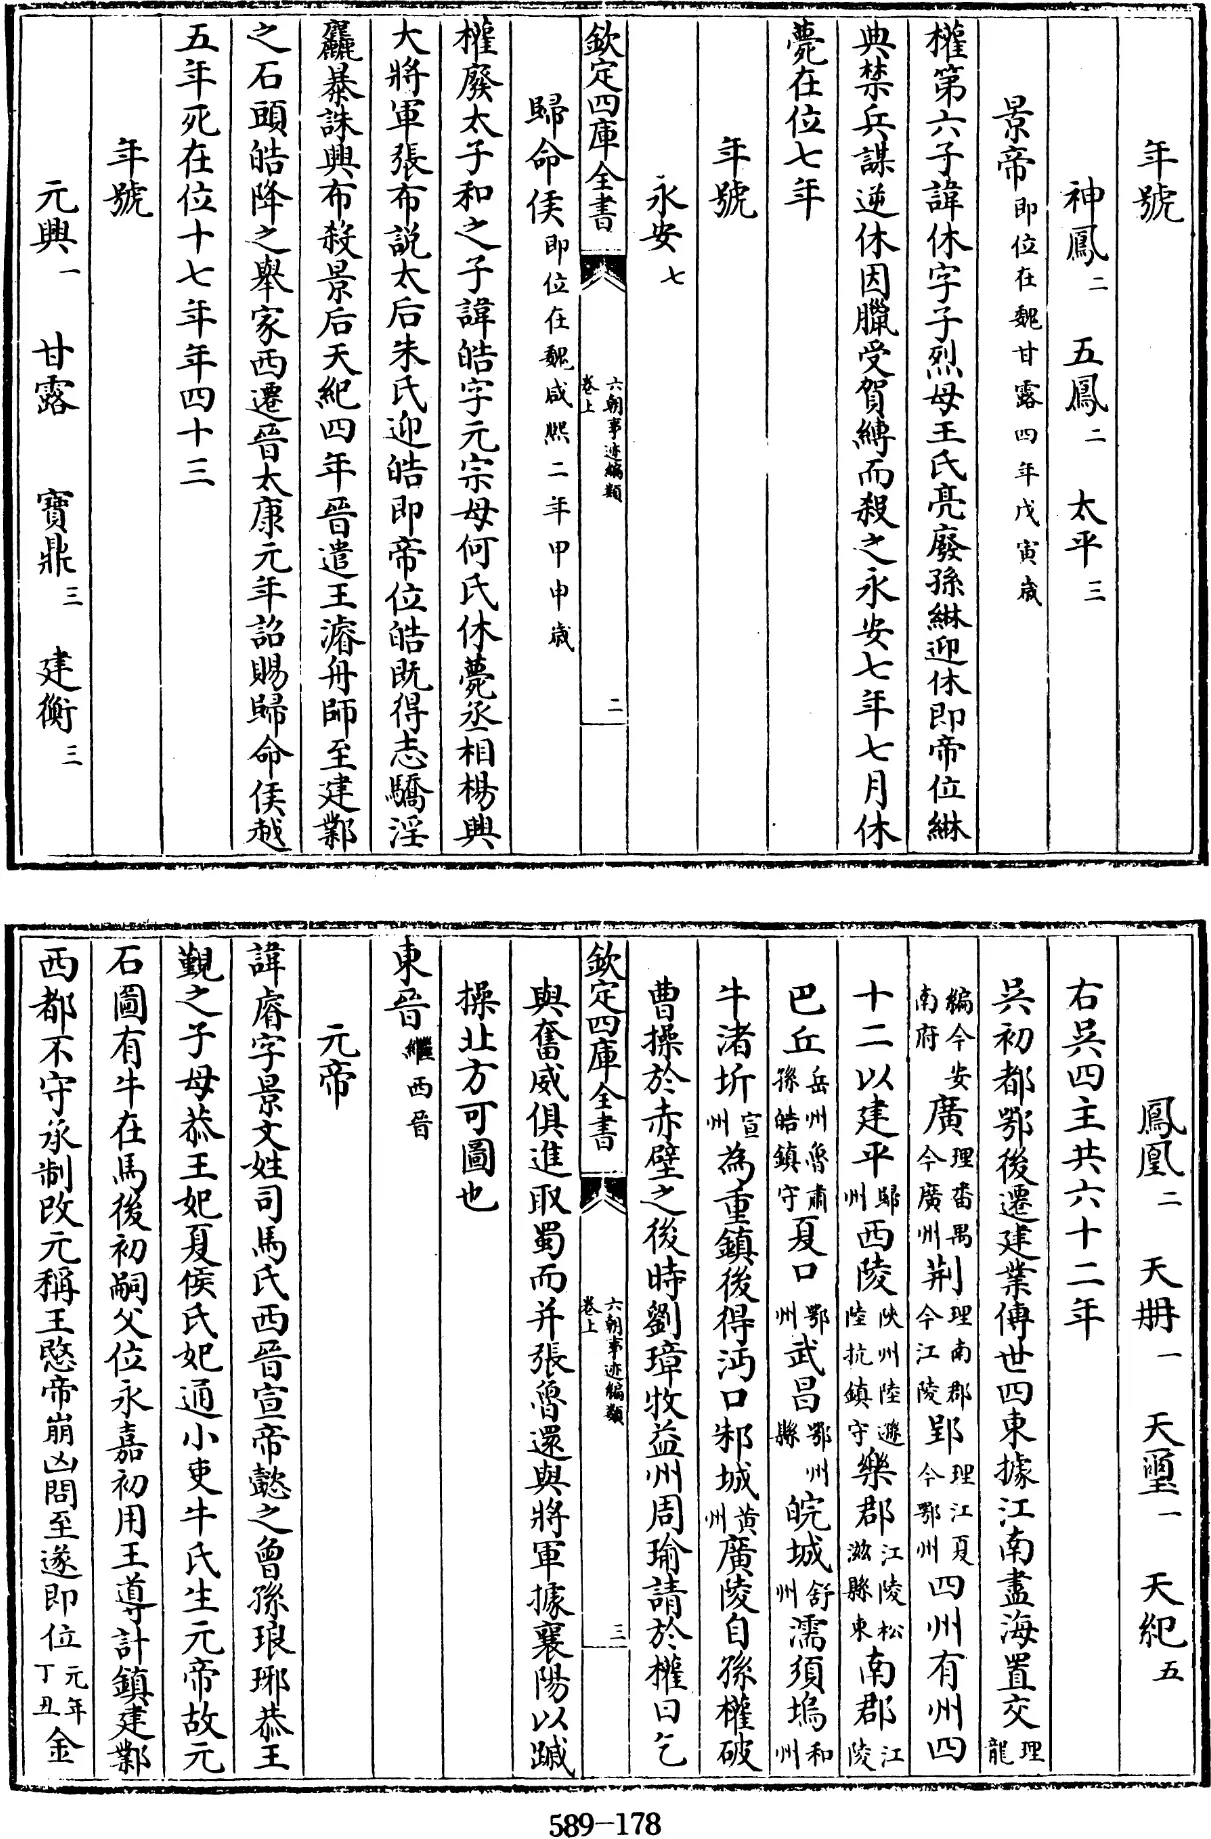 年號
神鳳二 五鳳二 太平三
景帝即位在魏甘露四年戊寅歲
權第六子諱休字子烈母王氏亮廢孫綝迎休即帝位綝
典禁兵謀逆休因臘受賀縛而殺之永安七年七月休
薨在位七年
年號
永安七
欽定四庫全書 六朝事迹編類卷上 二
歸命侯即位在魏咸熙二年甲申歲
權廢太子和之子諱皓字元宗母何氏休薨丞相楊興
大將軍張布說太后朱氏迎皓即帝位皓既得志驕淫
麤暴誅興布殺景后天紀四年晉遣王濬舟師至建鄴
之石頭皓降之舉家西遷晉太康元年詔賜歸命侯越
五年死在位十七年年四十三
年號
元興一 甘露 寶鼎三 建衡三
鳳凰二 天册一 天璽一 天紀五
右吳四主共六十二年
吳初都鄂後遷建業傳世四東據江南盡海置交理龍
編今安南府廣理番禺今廣州荆理南郡今江陵郢理江夏今鄂州四州有州四
十二以建平歸州西陵陜州陸遜陸抗鎮守樂郡江陵松滋縣東南郡江陵
巴丘岳州魯肅孫皓鎮守夏口鄂州武昌鄂州縣皖城舒州濡須塢和州
牛渚圻宣州為重鎮後得沔口邾城黃州廣陵自孫權破
曹操於赤壁之後時劉璋牧益州周瑜請於權曰乞
欽定四庫全書 六朝事迹編類卷上 三
與奮威俱進取蜀而并張魯還與將軍據襄陽以蹙
操北方可圖也
東晉繼西晉
元帝
諱睿字景文姓司馬氏西晉宣帝懿之曾孫琅琊恭王
覲之子母恭王妃夏侯氏妃通小吏牛氏生元帝故元
石圖有牛在馬後初嗣父位永嘉初用王導計鎮建鄴
西都不守承制改元稱王愍帝崩凶問至遂即位元年丁丑金
589-178